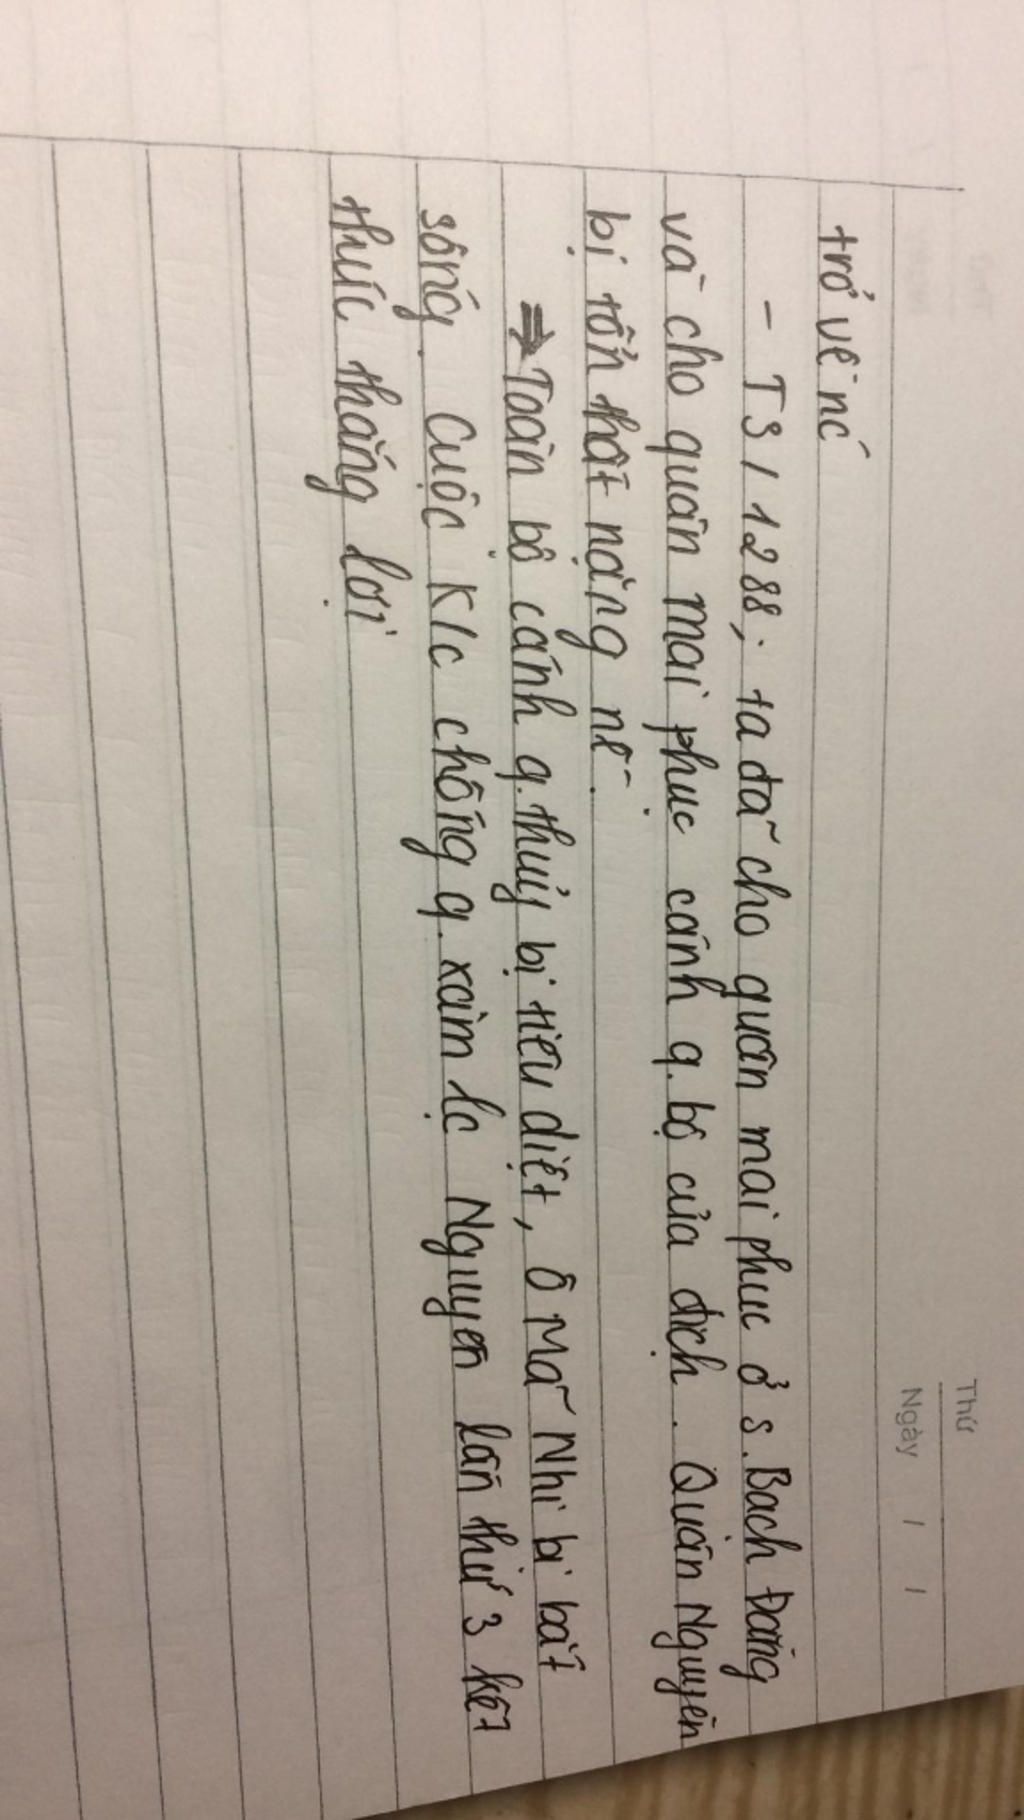 Thứ
Ngày / /
trở về nć
- T3/1288, ta đã cho quân mai phục ở s. Bạch Đằng
và cho quân mai phục cánh q. bộ của địch. Quân Nguyên
bị tổn thất nặng nề.
⇒ Toàn bộ cánh q. thuỷ bị tiêu diệt, Ô Mã Nhi bị bắt
sống. Cuộc K/c chống q. xâm lc Nguyên lần thứ 3 kết
thúc thắng lợi